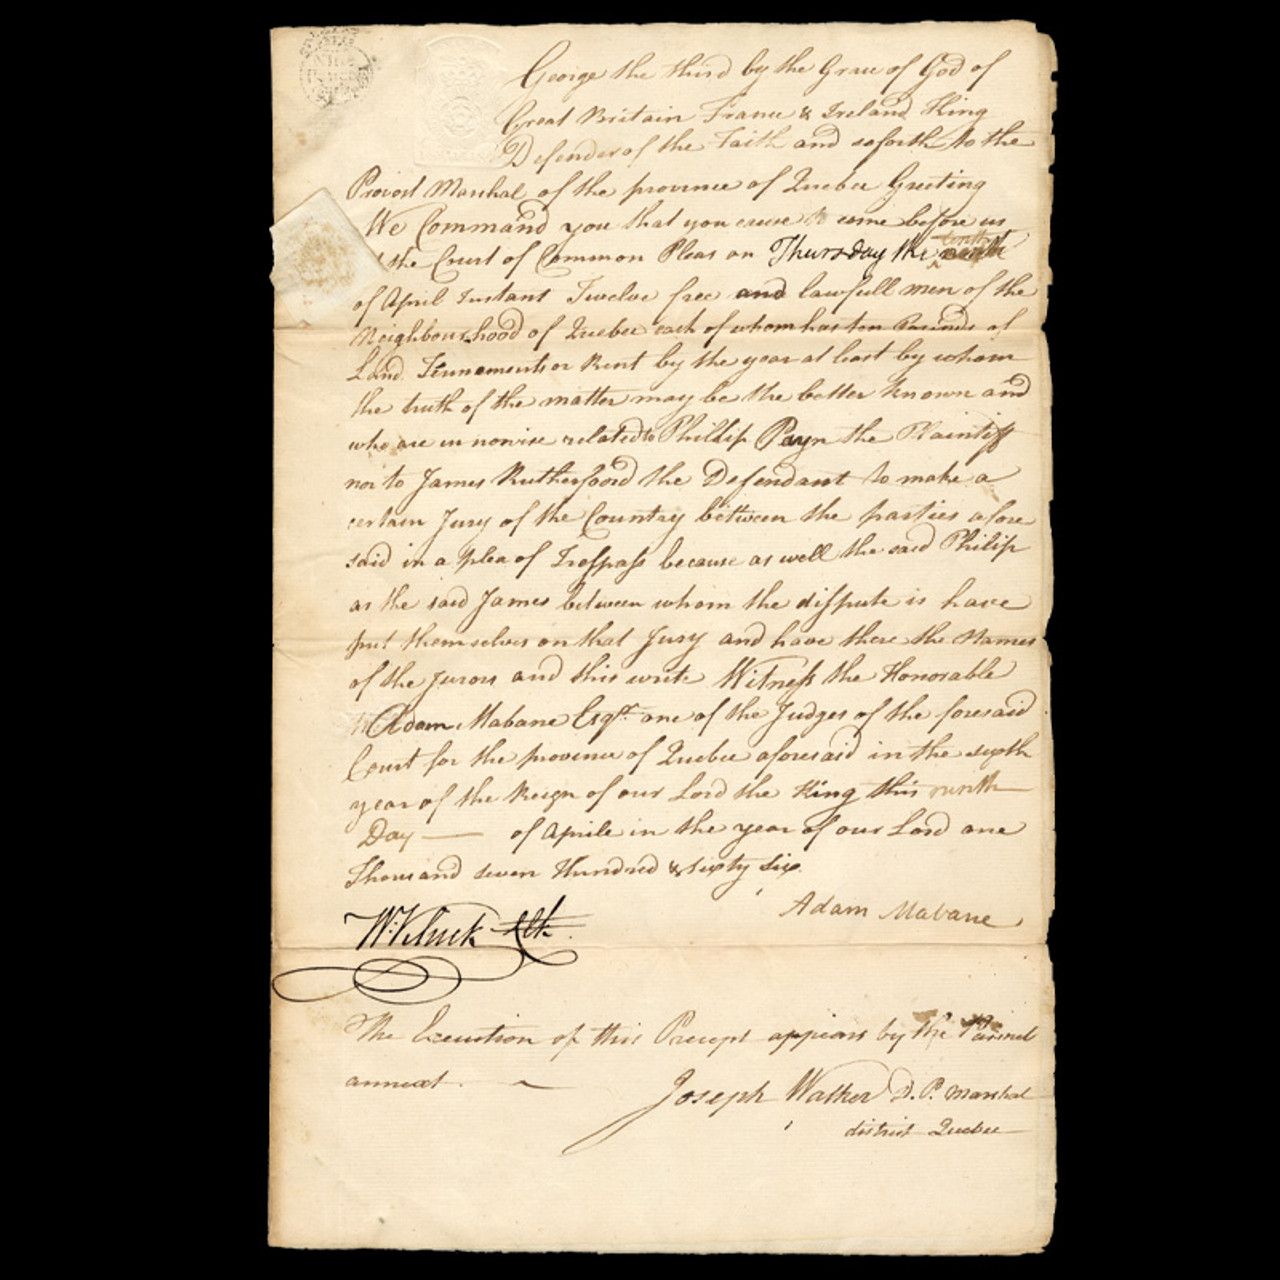 George the third by the Grace of God of
Great Britain France & Ireland King
Defender of the Faith and soforth to the
Provost Marshal of the province of Quebec Greeting
We Command you that you cause to come before us
the Court of Common Pleas on Thursday the tenth
of April Instant Twelve free and lawfull men of the
Neighbourhood of Quebec each of whom has ten Pounds of
Land Tennements or Rent by the year at least by whom
the truth of the matter may be the better known and
who are in nowise related to Phillip Payn the Plaintiff
nor to James Rutherfoord the Defendant to make a
certain Jury of the Country between the parties afore
said in a plea of Trespass because as well the said Philip
as the said James between whom the dispute is have
put themselves on that Jury and have there the Names
of the Jurors and this write Witness the Honorable
Adam Mabane Esqr. one of the Judges of the foresaid
Court for the province of Quebec aforesaid in the sixth
year of the Reign of our Lord the King this ninth
Day of Aprile in the year of our Lord one
Thousand seven Hundred & sixty six.
Adam Mabane
Clk.
The Execution of this Precept appears by the Pannel
annext.
Joseph Walker D. P. Marshal
district Quebec